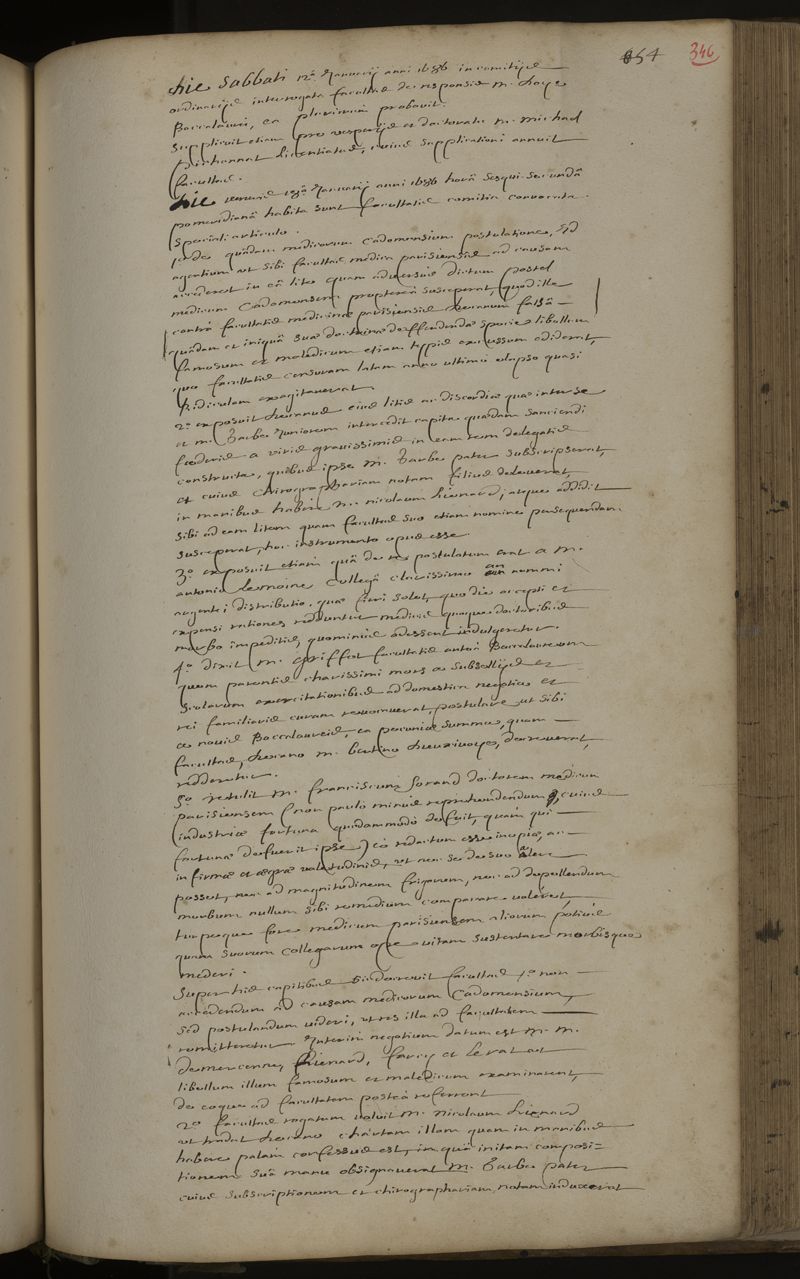 854 346
Die Sabbati 12a Januarij anni 1686 in comitijs
ordinarijs interrogata facultas de responsis M. Doye
Baccalaurei, ea plurimum probavit.
Supplicuit etiam pro vesperijs et doctoratu M. Michael
licentiatus, cuius supplicationi annuit
facultas.
Die veneris 18a Januarij anni 1686 horâ sesqui secundâ
pomeridianâ habita sunt facultatis comitia convocata
speciali articulo.
1o de quâdam medicorum Cadomensium postulatione, id
agentium ut sibi facultas medica parisiensis ad causam
accederet in eâ lite quam adversus dictum postel
medicum Cadomensem propterea susceperat, quod ille
contrà facultatis medicinae parisiensis decanum falsâ
quâdam et iniquâ suae doctrinae deffendendae specie libellum
famosum et maledicum etiam typis excussum ediderat,
quo facultatis censuram latam anno ultimo elapso quasi
ridiculam exagitaverat
2o exposuit decanus eius litis ac discordiae quae inter se
et M. Barbe juniorem intercedit capita quaedam sanciendi
foederis a viris gravissimis in eam rem delegatis
construita, quibus ipse M. Barbe pater subscripserat,
et cuius chirographariam notam filius deleverat,
in manibus habere M. nicolaum Lienard, atque addidit
sibi ad eam litem quam facultas suo etiam nomine persequendam
susceperat, hoc instrumento opus esse.
3o exposuit etiam quâ de re postulatum erat a M.
antonio Lemoine collegâ clarissimo an nummi
argentei distributio, quae fieri solet, quo die accepti et
expensi rationes redduntur medicis quoque doctoribus
morbo impeditis, quominus adessent indulgeretur.
4o dixit M. griffot facultatis anteà Baccalaureum
quem parentis charissimi mors a subsellijs et
scolarum exercitationibus ad domestica negotia et
rei familiaris curam revocaverat, postulare ut sibi
a novis Baccalaureis, ea pecuniae summa, quam
facultas, decano M. bertino Dieuxivoye, decreverat,
redderetur.
5o retulit M. franciscum Lorand doctorem medicum
parisiensem (non paulo minus reprehendendum, cuius
industriae fortuna quodammodo defuit, quam qui
fortunae defuerit ipse) eò redactum esse inopiae, ac
infirmae et aegrae valetudinis, ut nec se de suo alere
posset, nec ad magnitudinem frigorum, nec ad depellendum
morbum nullum sibi remedium comparare valeret,
turpeque fore medicum parisiensem aliorum potius
quam suorum collegarum ope vitam sustentare morbisque
mederi.
Super his capitibus sic decrevit facultas 1o non
accedendum ad causam medicorum Cadomensium,
sed postulandum videri, ut res illa ad facultatem
remitteretur. Interim negotium datum est M. M.
de mercenne, Lienard, farcy et Le rat ut
libellum illum famosum et maledicum examinarent,
de eoque ad facultatem posteà referrent
2o facultas rogatum voluit M. Nicolaum Lienard
ut tradat decano chartam illam quam in manibus
habere palam confessus est, in quâ initam composi=
tionem suâ manu obsignaverat M. Barbe pater
cuius subscriptionem et chirographariam notam induxerat